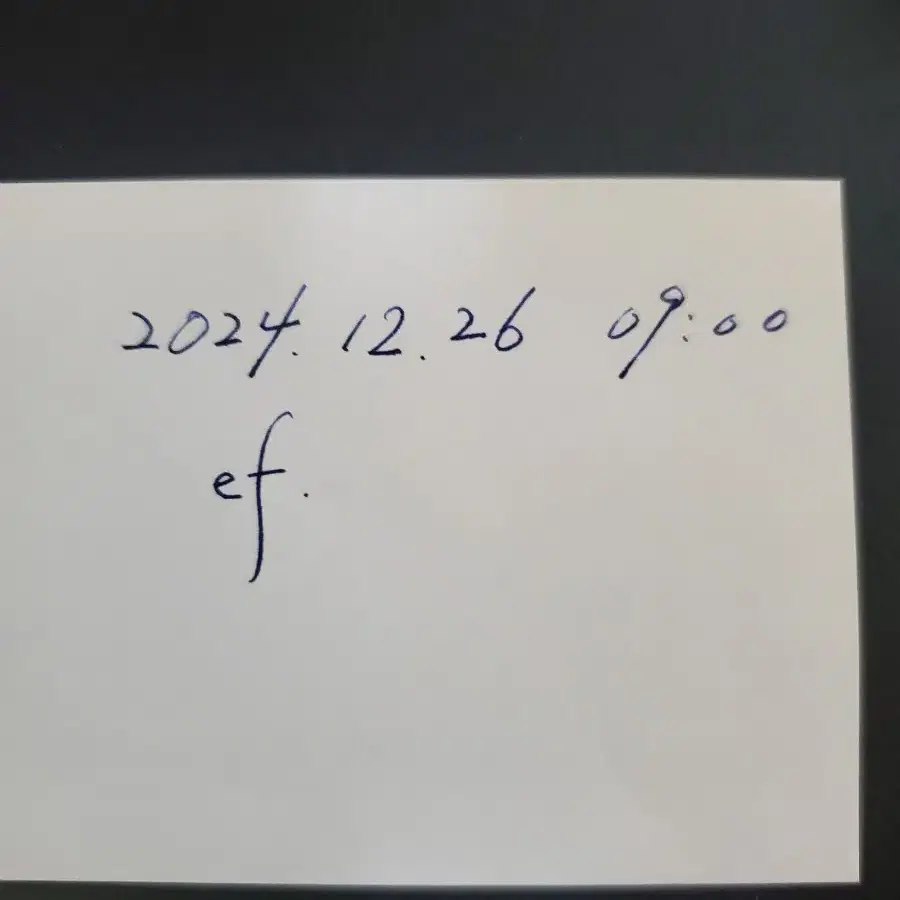 2024.12.26 09:00
ef.